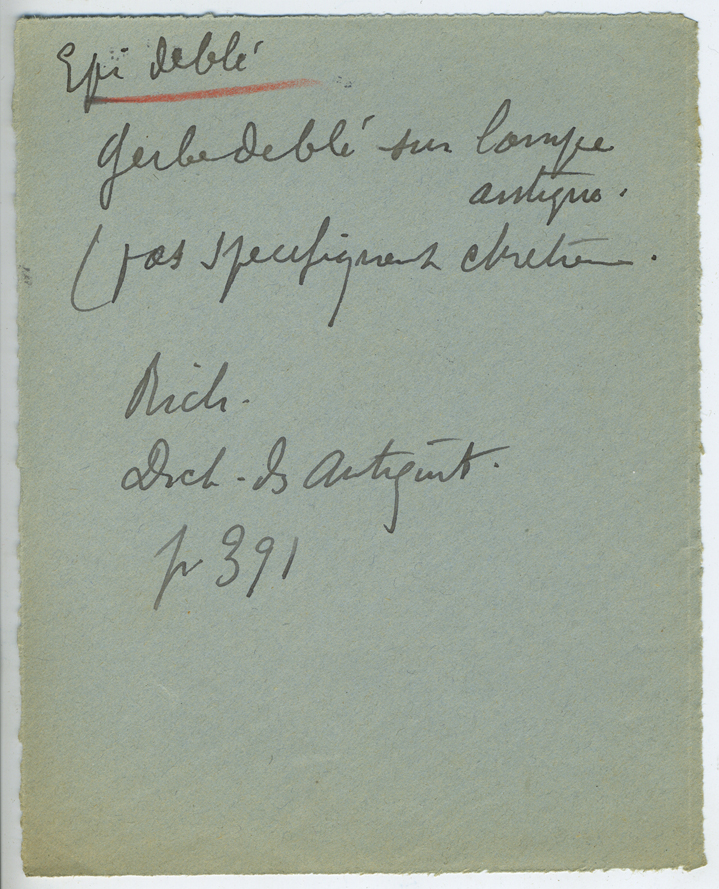 Epi de blé
Gerbe de blé sur lampe
antique.
(pas specifiquement chretien.
Rich.
Dict. ds Antiquit.
p 391